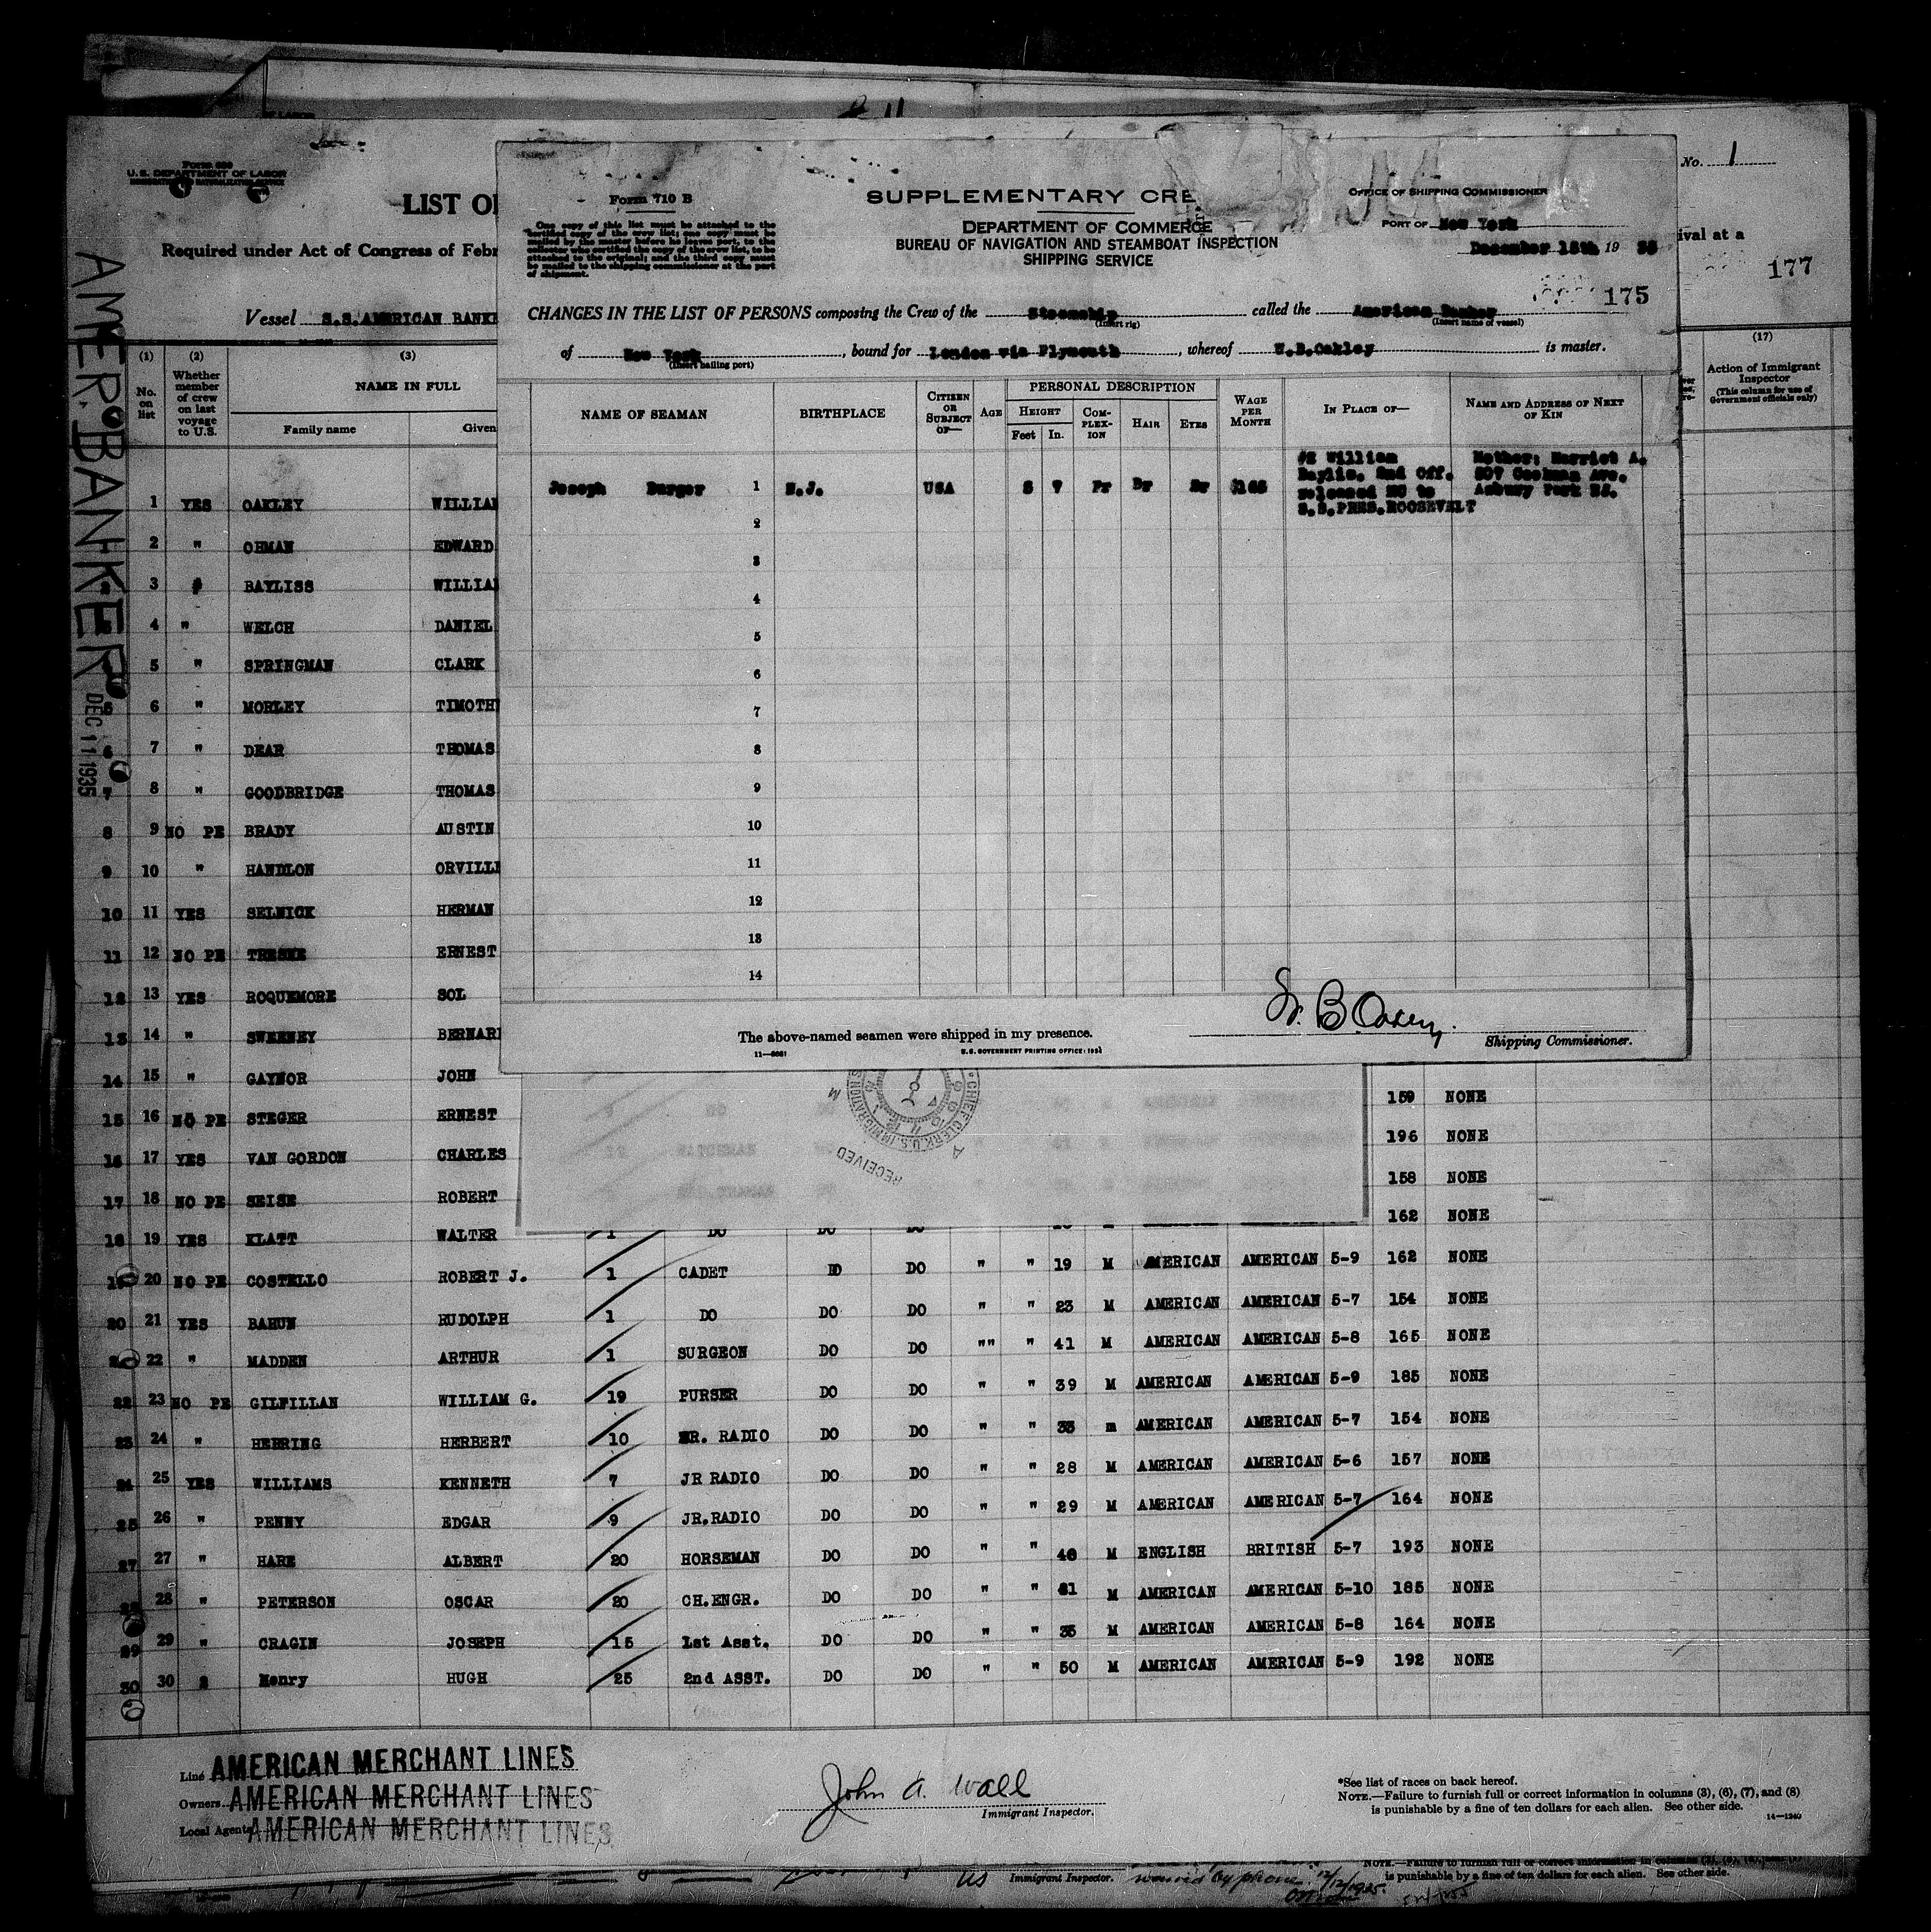 Form 680
U.S. DEPARTMENT OF LABOR
LIST OF
Required under Act of Congress of Febr
Vessel S.S. AMERICAN BANKE
No. 1
ival at a
177
AMER. BANKER
DEC 11 1935
Form 710 B
One copy of this list must be attached to the
certified copy of the crew list; one copy must be
mailed by the master before he leaves port, to the
collector who certified the copy of the crew list, to be
attached to the original; and the third copy must
be mailed to the shipping commissioner at the port
of shipment.
SUPPLEMENTARY CRE
DEPARTMENT OF COMMERCE
BUREAU OF NAVIGATION AND STEAMBOAT INSPECTION
SHIPPING SERVICE
OFFICE OF SHIPPING COMMISSIONER
PORT OF New York
December 1935
175
CHANGES IN THE LIST OF PERSONS composing the Crew of the Steamship called the American Banker
(Insert rig) (Insert name of vessel)
of New York, bound for London via Plymouth, whereof W.B.Oakley is master.
(Insert hailing port)
NAME OF SEAMAN BIRTHPLACE CITIZEN OR SUBJECT OF— AGE PERSONAL DESCRIPTION WAGE PER MONTH IN PLACE OF— NAME AND ADDRESS OF NEXT OF KIN
HEIGHT COMPLEXION HAIR EYES
Feet In.
Joseph Burger 1 N.J. USA 5 7 Fr Br Br $165
#2 William
Baylis, 2nd Off.
released MC to
S.S.PRES.ROOSEVELT
Mother: Harriet A.
507 Cookman Ave.
Asbury Park NJ.
2
3
4
5
6
7
8
9
10
11
12
13
14
W. B. Oakley
The above-named seamen were shipped in my presence.
Shipping Commissioner.
U.S. GOVERNMENT PRINTING OFFICE: 1934
(1) (2) (3) (17)
No. on list
Whether member of crew on last voyage to U.S.
NAME IN FULL
Family name Given
Action of Immigrant Inspector
(This column for use of Government officials only)
1 YES OAKLEY WILLIAM
2 " OHMAN EDWARD
3 BAYLISS WILLIA
4 " WELCH DANIEL
5 " SPRINGMAN CLARK
6 " MORLEY TIMOTH
7 " DEAR THOMAS
8 " GOODBRIDGE THOMAS
9 NO PE BRADY AUSTIN
10 " HANDLON ORVILLE
11 YES SELNICK HERMAN
12 NO PE TRESKE ERNEST
13 YES ROQUEMORE SOL
14 " SWEENEY BERNAR
15 " GAYNOR JOHN 159 NONE
16 NO PE STEGER ERNEST 196 NONE
17 YES VAN GORDON CHARLES 158 NONE
18 NO PE SEISE ROBERT 162 NONE
19 YES KLATT WALTER 1 DO DO DO
20 NO PE COSTELLO ROBERT J. 1 CADET DO DO " " 19 M AMERICAN AMERICAN 5-9 162 NONE
21 YES BAHUN RUDOLPH 1 DO DO DO " " 23 M AMERICAN AMERICAN 5-7 154 NONE
22 " MADDEN ARTHUR 1 SURGEON DO DO "" " 41 M AMERICAN AMERICAN 5-8 165 NONE
23 NO PE GILFILLAN WILLIAM G. 19 PURSER DO DO " " 39 M AMERICAN AMERICAN 5-9 185 NONE
24 " HERRING HERBERT 10 SR. RADIO DO DO " " 33 m AMERICAN AMERICAN 5-7 154 NONE
25 YES WILLIAMS KENNETH 7 JR RADIO DO DO " " 28 M AMERICAN AMERICAN 5-6 157 NONE
26 " PENNY EDGAR 9 JR.RADIO DO DO " " 29 M AMERICAN AMERICAN 5-7 164 NONE
27 " HARE ALBERT 20 HORSEMAN DO DO " " 46 M ENGLISH BRITISH 5-7 193 NONE
28 " PETERSON OSCAR 20 CH.ENGR. DO DO " " 61 M AMERICAN AMERICAN 5-10 185 NONE
29 " CRAGIN JOSEPH 15 1st Asst. DO DO " " 35 M AMERICAN AMERICAN 5-8 164 NONE
30 Henry HUGH 25 2nd ASST. DO DO " " 50 M AMERICAN AMERICAN 5-9 192 NONE
CHIEF CLERK U.S. IMMIGRATION
RECEIVED
Line AMERICAN MERCHANT LINES
Owners AMERICAN MERCHANT LINES
Local Agents AMERICAN MERCHANT LINES
John A. Wall
Immigrant Inspector.
*See list of races on back hereof.
NOTE.—Failure to furnish full or correct information in columns (3), (6), (7), and (8)
is punishable by a fine of ten dollars for each alien. See other side.
14—1240
NOTE.—Failure to furnish full or correct information in columns (3), (6), (7), and (8)
is punishable by a fine of ten dollars for each alien. See other side.
US Immigrant Inspector. by phone 12/12/1935